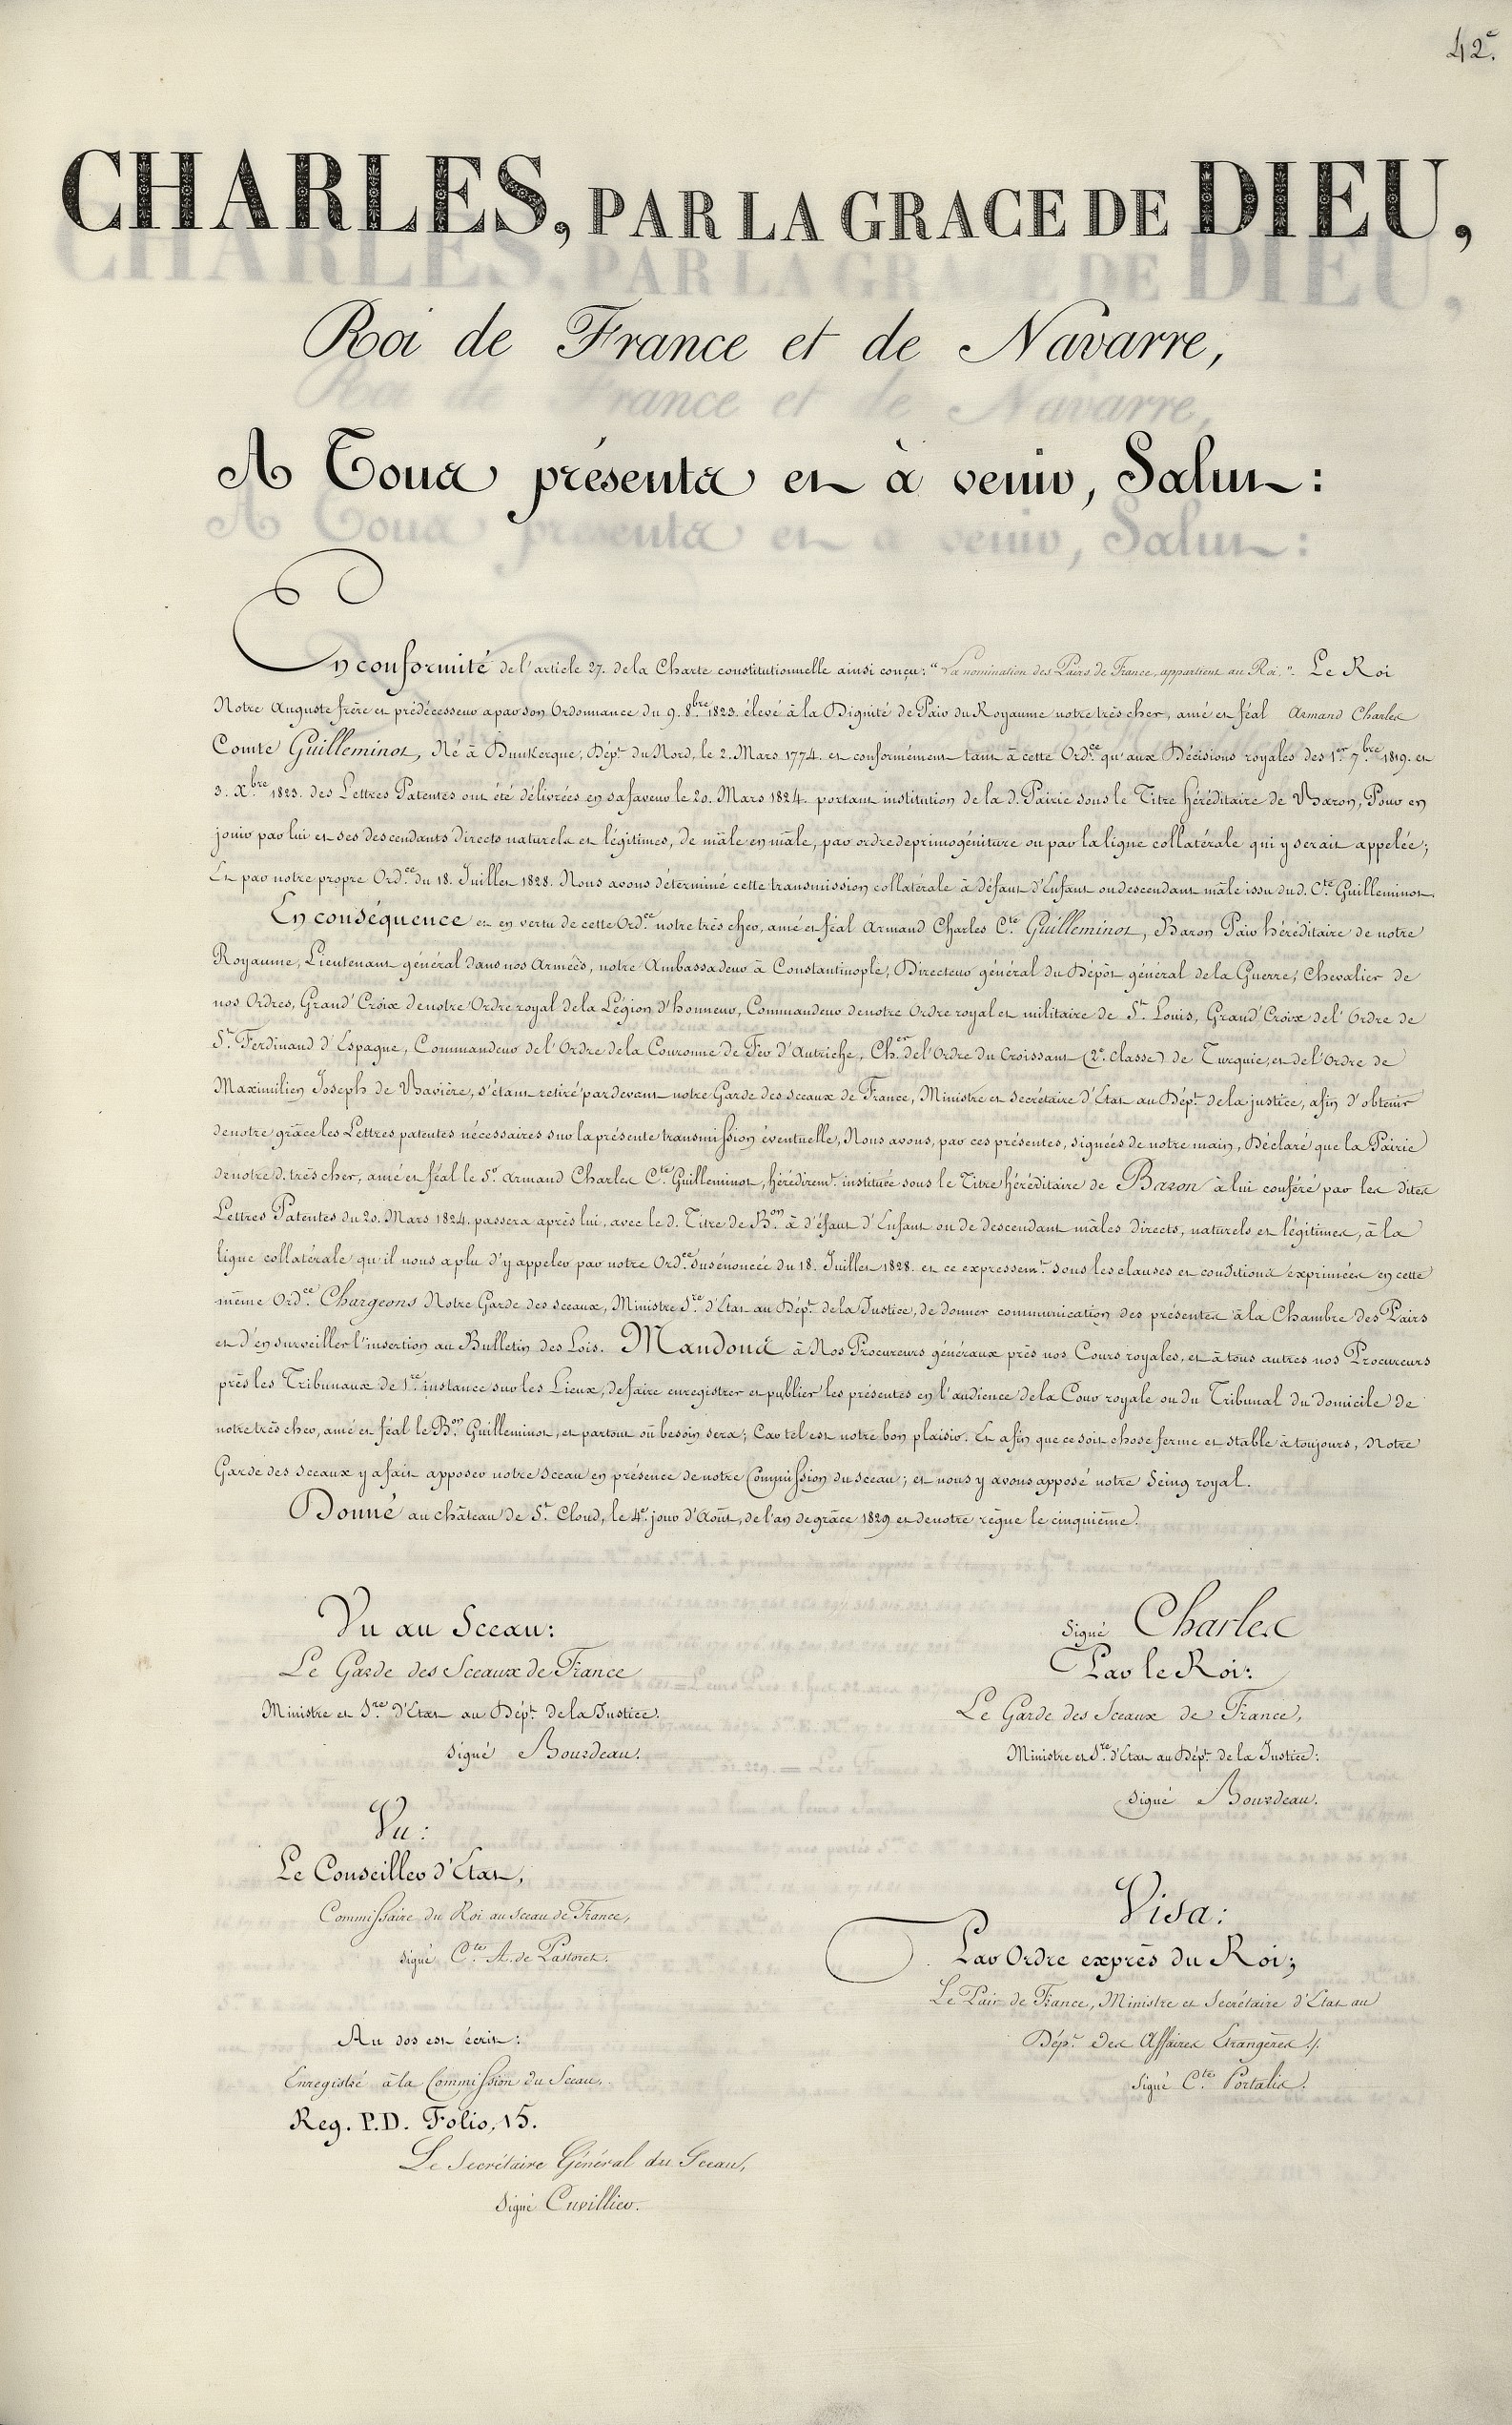 42e.
CHARLES, PAR LA GRACE DE DIEU,
Roi de France et de Navarre,
A Tous présents et à venir, Salut :
En conformité de l'article 27. de la Charte constitutionnelle ainsi conçu: "La nomination des Pairs de France, appartient au Roi." Le Roi
Notre Auguste frère et prédécesseur a par son Ordonnance du 9. 8bre 1823. élevé à la Dignité de Pair du Royaume notre très cher, amé et féal Armand Charles
Comte Guilleminot, Né à Dunkerque, Dépt. du Nord, le 2. Mars 1774. et conformément tant à cette Ordce. qu'aux Décisions royales des 1er. 7bre 1819. et
3. Xbre 1823. des Lettres Patentes ont été délivrées en sa faveur le 20. Mars 1824. portant institution de la d. Pairie sous le Titre héréditaire de Baron, Pour en
jouir par lui et ses descendants directs naturels et légitimes, de mâle en mâle, par ordre de primogéniture ou par la ligne collatérale qui y serait appelée;
Et par notre propre Ordce. du 18. Juillet 1828. Nous avons déterminé cette transmission collatérale à défaut d'Enfant ou descendant mâle issu du d. Cte. Guilleminot.
En conséquence et en vertu de cette Ordce. notre très cher, amé et féal Armand Charles Cte. Guilleminot, Baron Pair héréditaire de notre
Royaume, Lieutenant général dans nos Armées, notre Ambassadeur à Constantinople, Directeur général du Dépôt général de la Guerre, Chevalier de
nos Ordres, Grand' Croix de notre Ordre royal de la Légion d'honneur, Commandeur de notre Ordre royal et militaire de St. Louis, Grand' Croix de l'Ordre de
St. Ferdinand d'Espagne, Commandeur de l'Ordre de la Couronne de Fer d'Autriche, Cher. de l'Ordre du Croissant (2e. classe) de Turquie, et de l'Ordre de
Maximilien Joseph de Bavière, s'étant retiré pardevant notre Garde des sceaux de France, Ministre et secrétaire d'Etat au Dépt. de la justice, afin d'obtenir
de notre grâce les Lettres patentes nécessaires sur la présente transmission éventuelle, Nous avons, par ces présentes, signées de notre main, Déclaré que la Pairie
de notre d. très cher, amé et féal le Sr. Armand Charles Cte. Guilleminot, hérédiremt. instituée sous le Titre héréditaire de Baron à lui conféré par les dites
Lettres Patentes du 20. Mars 1824. passera après lui, avec le d. Titre de Bon. à d'éfaut d'Enfant ou de descendant mâles directs, naturels et légitimes, à la
ligne collatérale qu'il nous a plu d'y appeler par notre Ordce. susénoncée du 18. Juillet 1828. et ce expressemt. sous les clauses et conditions exprimées en cette
même Ordce. Chargeons Notre Garde des sceaux, Ministre Sre. d'Etat au Dépt. de la Justice, de donner communication des présentes à la Chambre des Pairs
et d'en surveiller l'insertion au Bulletin des Lois. Mandons à Nos Procureurs généraux près nos Cours royales, et à tous autres nos Procureurs
près les Tribunaux de 1re. instance sur les Lieux, de faire enregistrer et publier les présentes en l'audience de la Cour royale ou du Tribunal du domicile de
notre très cher, amé et féal le Bon. Guilleminot, et partout où besoin sera; Car tel est notre bon plaisir. Et afin que ce soit chose ferme et stable à toujours, Notre
Garde des sceaux y a fait apposer notre sceau en présence de notre Commission du sceau; et nous y avons apposé notre Seing royal.
Donné au château de St. Cloud, le 4e. jour d'Août, de l'an de grâce 1829 et de notre règne le cinquième.
Vu au Sceau:
Le Garde des Sceaux de France
Ministre et Sre d'Etat au Dépt. de la Justice.
Signé Bourdeau.
Vu:
Le Conseiller d'Etat,
Commissaire du Roi au Sceau de France,
Signé Cte. A. de Pastoret.
Au dos est écrit:
Enregistré à la Commission du Sceau,
Reg. P.D. Folio, 15.
Le Secrétaire Général du Sceau,
Signé Cuvillier.
Signé Charles
Par le Roi:
Le Garde des Sceaux de France,
Ministre et Sre. d'Etat au Dépt. de la Justice:
Signé Bourdeau.
Visa:
Par Ordre exprès du Roi;
Le Pair de France, Ministre et Secrétaire d'Etat au
Dépt. des Affaires Etrangères ./.
Signé Cte. Portalis.